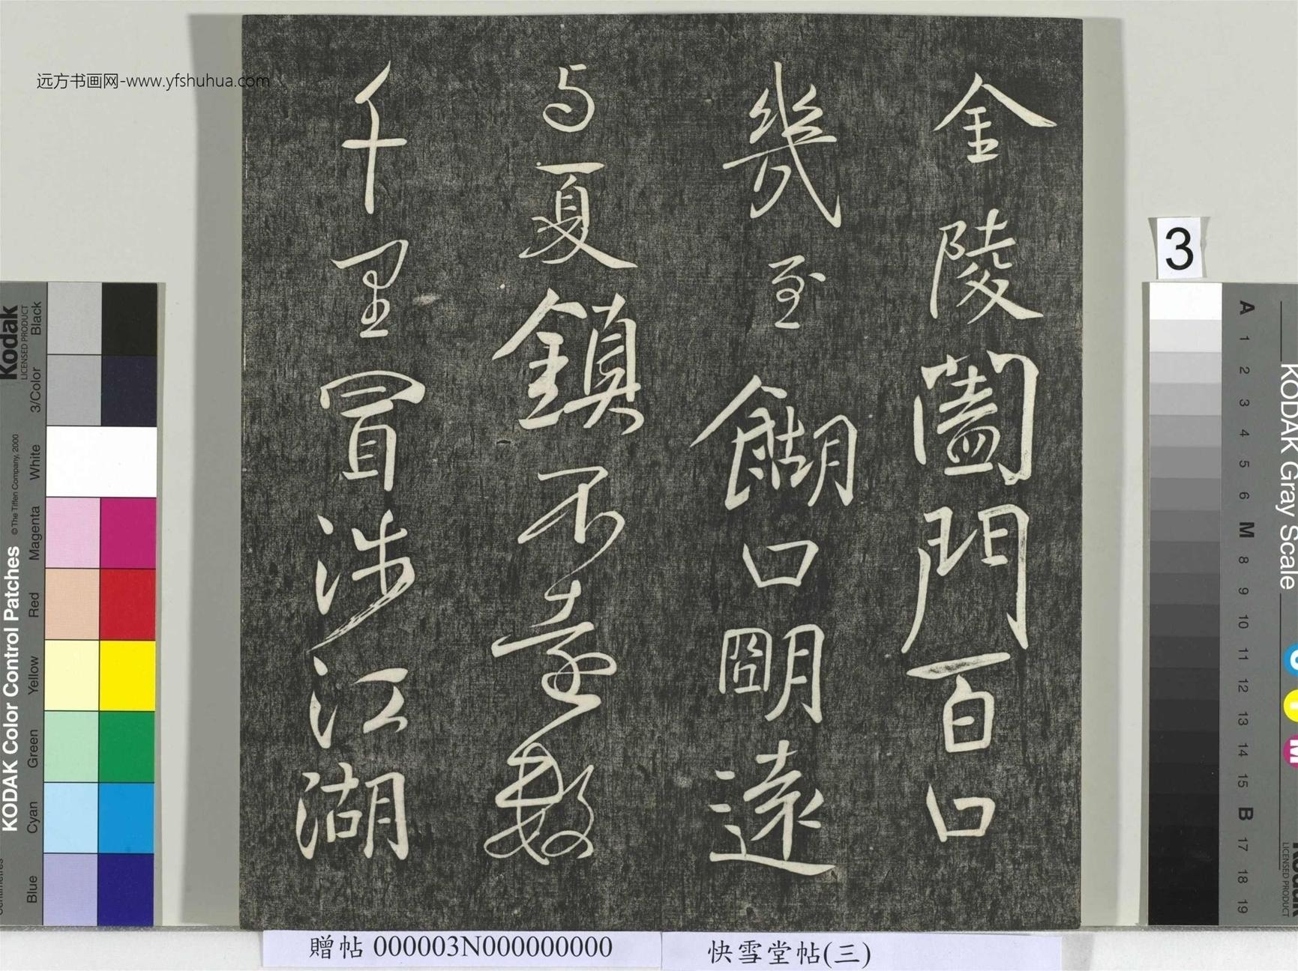 远方书画网-www.yfshuhua.com
金陵闔門百口
幾至餬口朙遠
与夏鎮不遠數
千里冒涉江湖
3
贈帖 000003N000000000
快雪堂帖(三)
KODAK Color Control Patches
© The Tiffen Company, 2000
Kodak
LICENSED PRODUCT
Blue
Cyan
Green
Yellow
Red
Magenta
White
3/Color
Black
KODAK Gray Scale
A
1
2
3
4
5
6
M
8
9
10
11
12
13
14
15
B
17
18
19